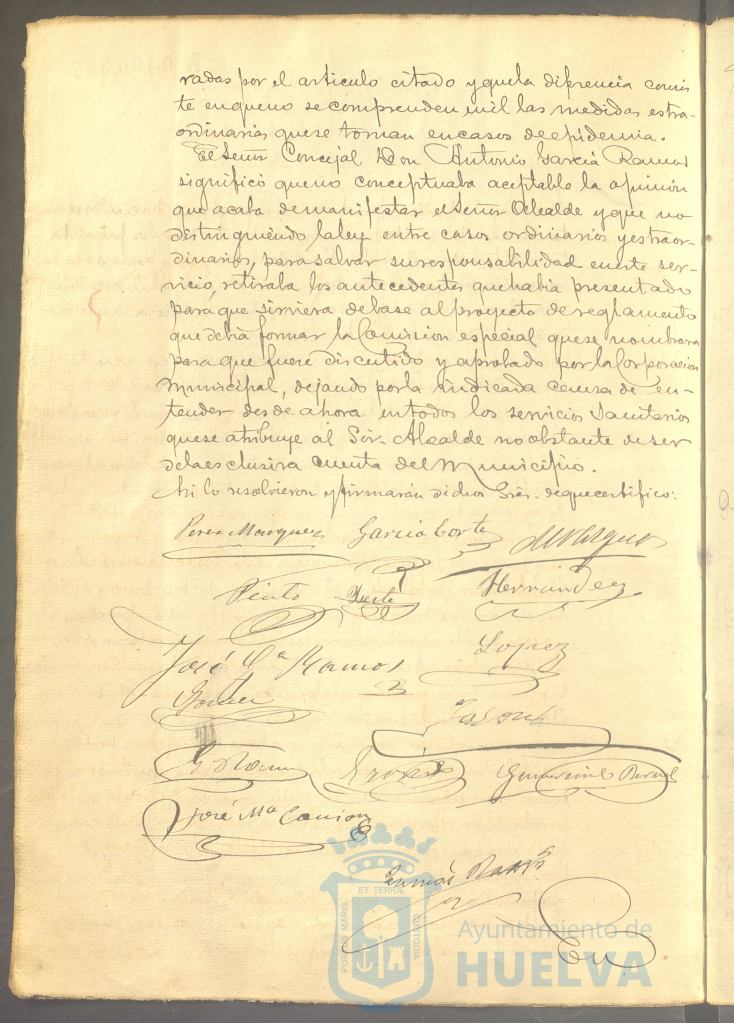 radas por el articulo citado y que la difrencia consis
te en que no se comprenden en el las medidas estra-
ordinarias que se toman en casos de epidemia.
El Señor Concejal Don Antonio García Ramos
significó que no conceptuaba aceptable la opinión
que acaba de manifestar el Señor Alcalde y que no
distinguiendo la ley entre casos ordinarios y estraor-
dinarios, para salvar su responsabilidad en este ser-
vicio, retiraba los antecedentes que habia presentado
para que sirviera de base al proyecto de reglamento
que debia formar la Comision especial que se nombrara
para que fuere discutido y aprobado por la Corporacion
Municipal, dejando por la indicada causa de en-
tender desde ahora en todos los servicios Sanitarios
que se atribuye al Sór. Alcalde no obstante de ser
de la esclusiva cuenta del Municipio.
Asi lo resolvieron y firmarán dichos Sres. de que certifico:
Perez Marquez García Corte de Vargas
Pinto Hernandez
José Gª Ramos Lopez
José Mª Cansion
Tomás
ET TERRÆ
PORTUS MARIS
CUSTODIA
Ayuntamiento de
HUELVA